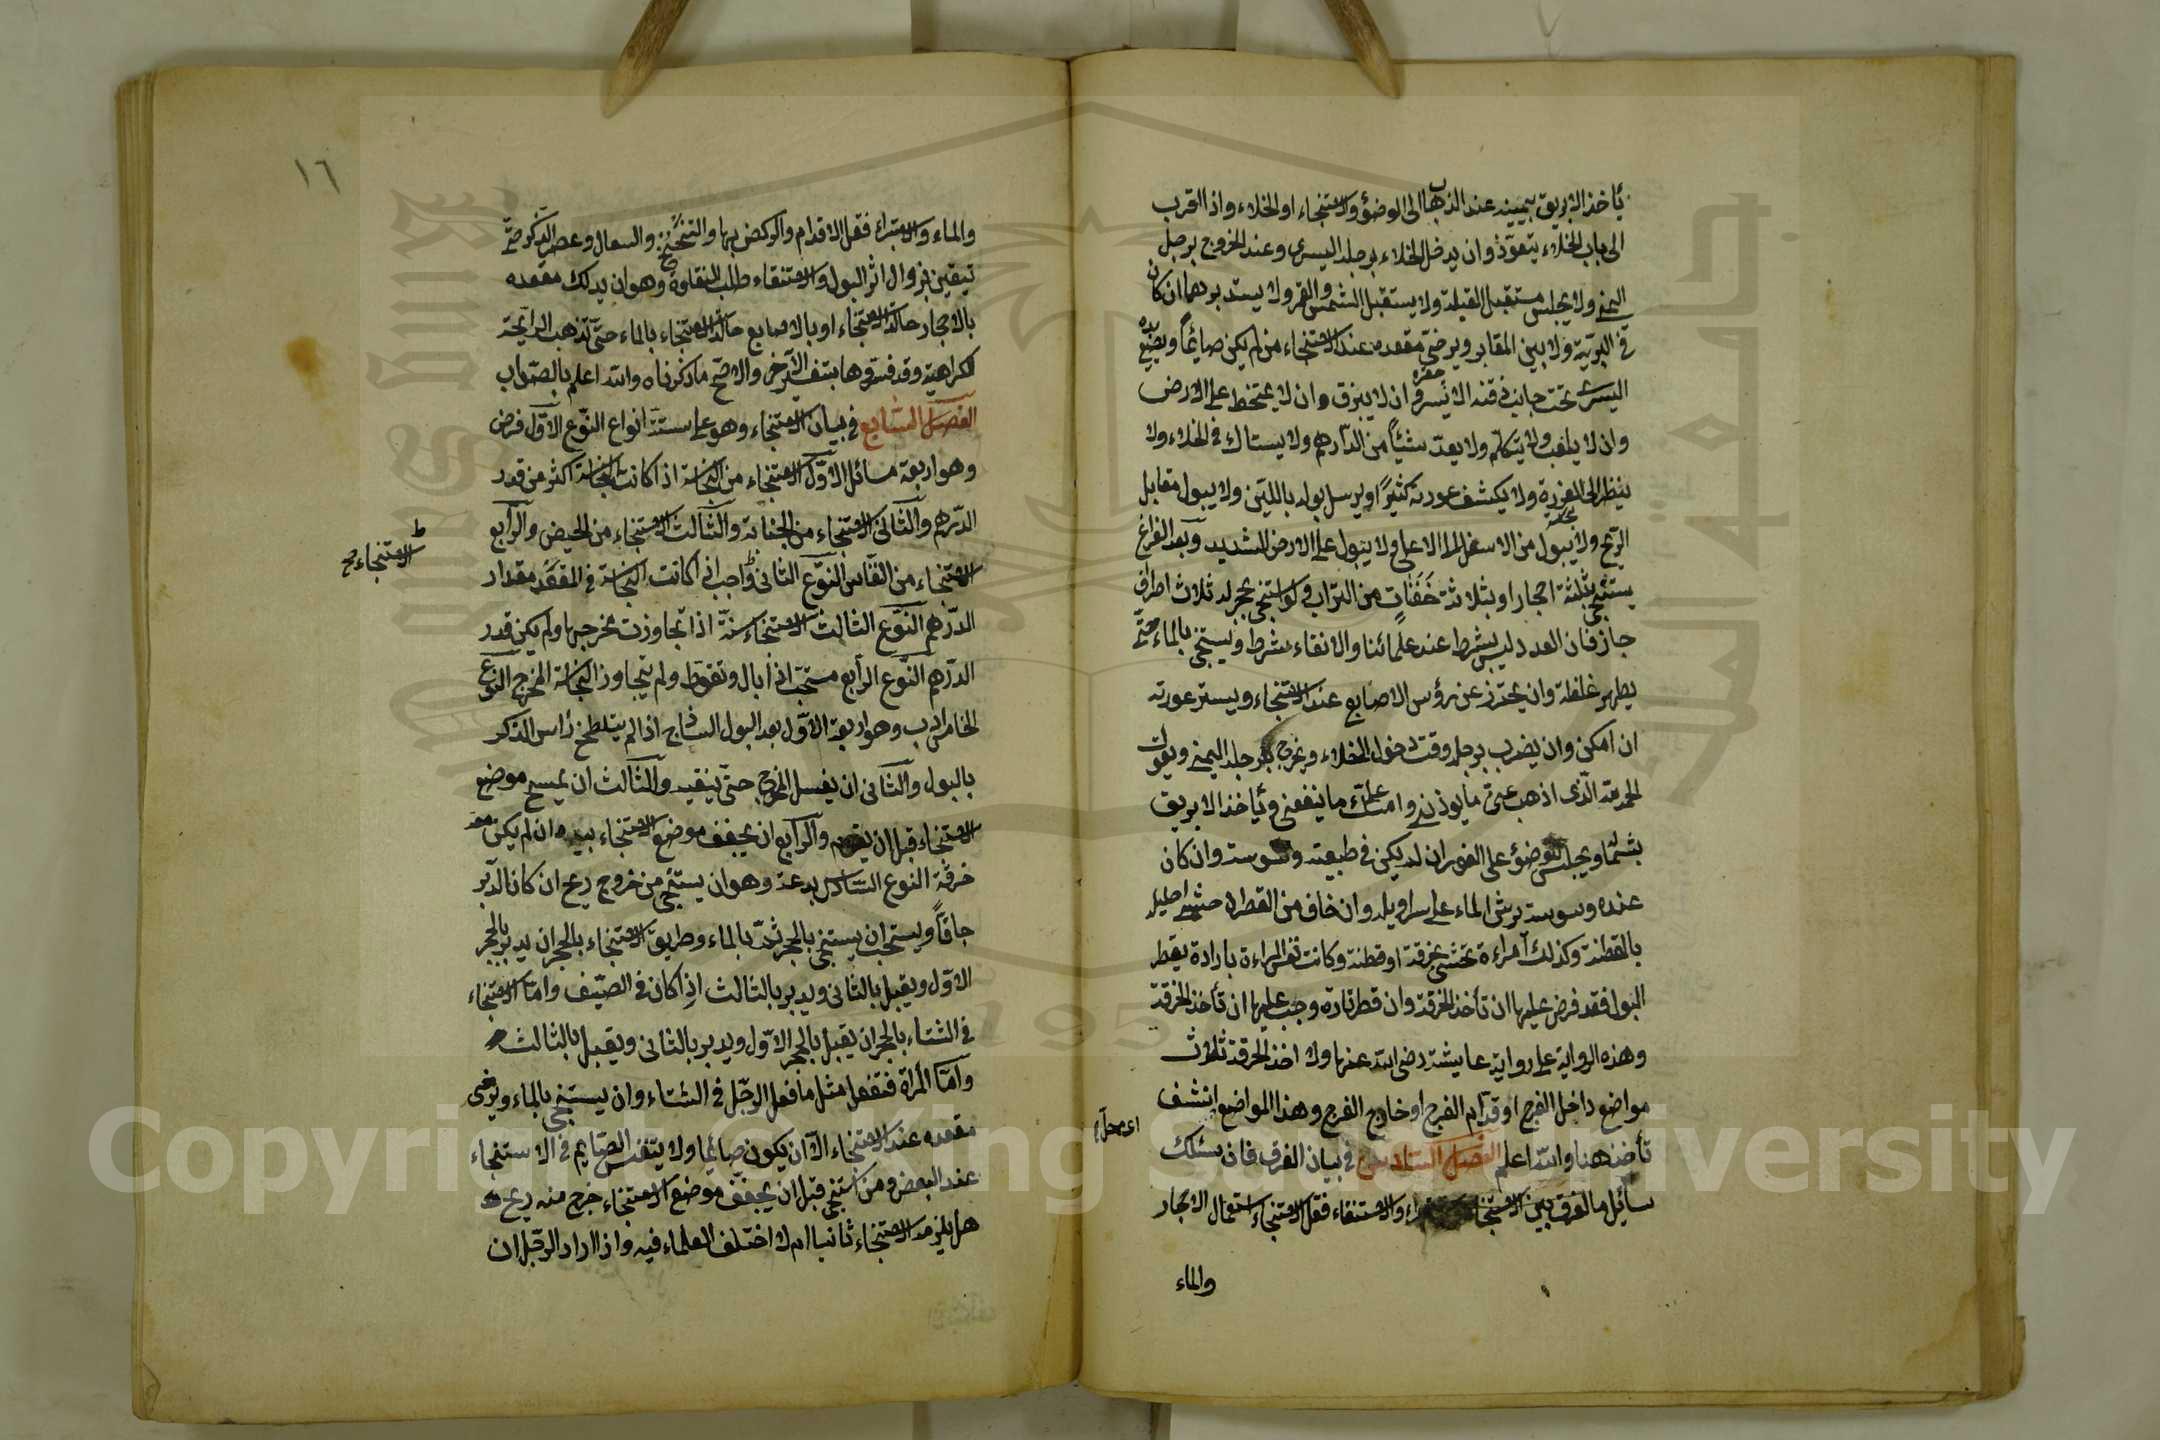 يأخذ الابريق بيمينه عند الذهاب الى الوضوء والاستنجاء او الخلاء واذا اقرب
الى باب الخلاء يتعوّذ وان يدخل الخلاء برجله اليسرى وعند الخروج برجل
اليمنى ولا يجلس مستقبل القبلة ولا يستقبل الشمس والقمر ولا يستدبرهما ان كان
فى البريّة ولا بين المقابر ويرخى مقعده عند الاستنجاء من لم يكن صائماً ويضع يده
اليسرى تحت جانب ذقنه الايسر وان لا يبزق وان لا يمتخط على الارض
وان لا يلعب ولا يتكلّم ولا يعدّ شيئاً من الدّراهم ولا يستاك فى الخلاء ولا
ينظر الى ولا يكشف عورته كثيراً ويرسل بوله باللين ولا يبول مقابل
الريح ولا يبول من الاسفل الى الاعلى ولا يتبول على الارض الشديد وبعد الفراغ
يستنجى بثلثة احجار او بثلاثة حَفَنَاتٍ من التراب ولو استنجى بحجر له ثلاث اطراف
جاز فان العدد ليس بشرط عند علمائنا والانقاء شرط ويستنجى بالماء حتّى
يطهر غلظه وان يحترز عن رؤس الاصابع عند الاستنجاء ويستر عورته
ان امكن وان يضرب برجله وقت دخول الخلاء ويخرج برجله اليمنى ويقول
الحمد لله الّذى اذهب عنّى ما يوذينى وامسك علىّ ما ينفعنى ويأخذ الابريق
بشماله ويجلس للوضوء على الفور ان لم يكن فى طبيعته وسوسة وان كان
عنده وسوسة يرش الماء على سراويله وان خاف من القطرة حشى احليله
بالقطنة وكذلك امراءة تحتشى بخرقة او قطنة وكانت نفس المراءة بارادة يقطر
البول فقد فرض عليها ان تأخذ الخرقة وان قطر تارة وجب عليها ان تأخذ الخرقة
وهذه الرواية على رواية عايشة رضى الله عنها ولا اخذ الخرقة ثلاث
مواضع داخل الفرج او قدّام الفرج او خارج الفرج وهذا المواضع انشف
تأخذ هنا والله اعلم الفصل السّادس فى بيان الفرق فان سئلك
سائل ما الفرق بين الاستنجاء والاستنقاء فقل الاستنجاء استعمال الاحجار
والماء
١٦
والماء والاستبراء فقل الاقدام والركض بها والتنحنح والسعال وعصر الذّكر حتّى
تيقين بزوال اثر البول والاستنقاء طلب النقاوة وهو ان يدلك مقعده
بالاحجار حالة الاستنجاء او بالاصابع حالة الاستنجاء بالماء حتّى تذهب الرايحة
الكراهية وقد فسّروها بتفسير الآخر والاصحّ ما ذكرناه والله اعلم بالصّواب
الفصل السّابع فى بيان الاستنجاء وهو على ستّة انواع النّوع الاوّل فرض
وهو اربعة مسائل الاوّل الاستنجاء من النجاسة اذا كانت النجاسة اكثر من قدر
الدّرهم والثّانى الاستنجاء من الجنابة والثّالث الاستنجاء من الحيض والرّابع
الاستنجاء من النّفاس النّوع الثانى واجب اذا كانت النجاسة فى المقعد مقدار
الدّرهم النّوع الثالث الاستنجاء سنّة اذا تجاوزت مخرجها ولم يكن قدر
الدّرهم النّوع الرّابع مستحبّ اذا بال وتغوّط ولم يتجاوز النجاسة المخرج النّوع
الخامس ادب وهو اربعة الاوّل بعد البول الساذج اذا لم يتلطّخ رأس الذّكر
بالبول والثّانى ان يغسل المخرج حتّى ينقيه والثّالث ان يمسح موضع
الاستنجاء قبل ان يقوم والرّابع ان يجفف موضع الاستنجاء بيده ان لم يكن معه
خرقة النوع السّادس بدعة وهو ان يستنجى من خروج ريح ان كان الدّبر
جافاً ويستحب ان يستنجى بالحجر ثمّ بالماء وطريق الاستنجاء بالحجر ان يدبر بالحجر
الاوّل ويقبل بالثانى ويدبر بالثالث اذ كان فى الصّيف وامّا الاستنجاء
فى الشتاء بالحجر ان يقبل بالحجر الاوّل ويدبر بالثانى ويقبل بالثالث
وامّا المرأة فتفعل مثل ما فعل الرّجل فى الشتاء وان يستنجى بالماء ويرخى
مقعده عند الاستنجاء الاّ ان يكون صائما ولا يتنفس الصّايم فى الاستنجاء
عند البعض ومن استنجى قبل ان يجفّف موضع الاستنجاء خرج منه ريح
هل يلزمه الاستنجاء ثانيا ام لا اختلف العلماء فيه واذا اراد الرّجل ان
الاستنجاء صح
Copyright © King Saud University
جامعة الملك
1957